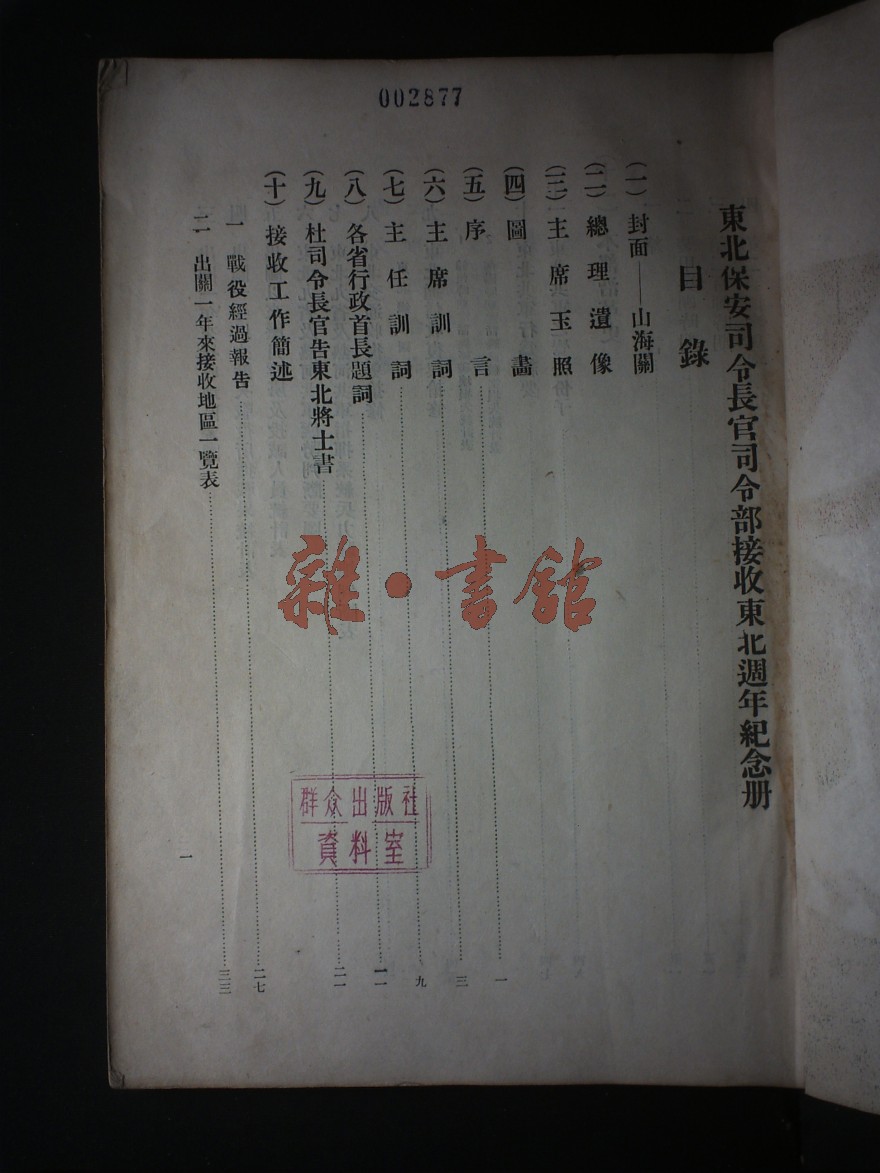 002877
東北保安司令長官司令部接收東北週年紀念册
目錄
(一)封面——山海關
(二)總理遺像
(三)主席玉照
(四)圖畫
(五)序言 一
(六)主席訓詞 三
(七)主任訓詞 九
(八)各省行政首長題詞 一一
(九)杜司令長官告東北將士書 二一
(十)接收工作簡述
一 戰役經過報告 二七
二 出關一年來接收地區一覽表 三三
一
雜·書館
群众出版社
資料室